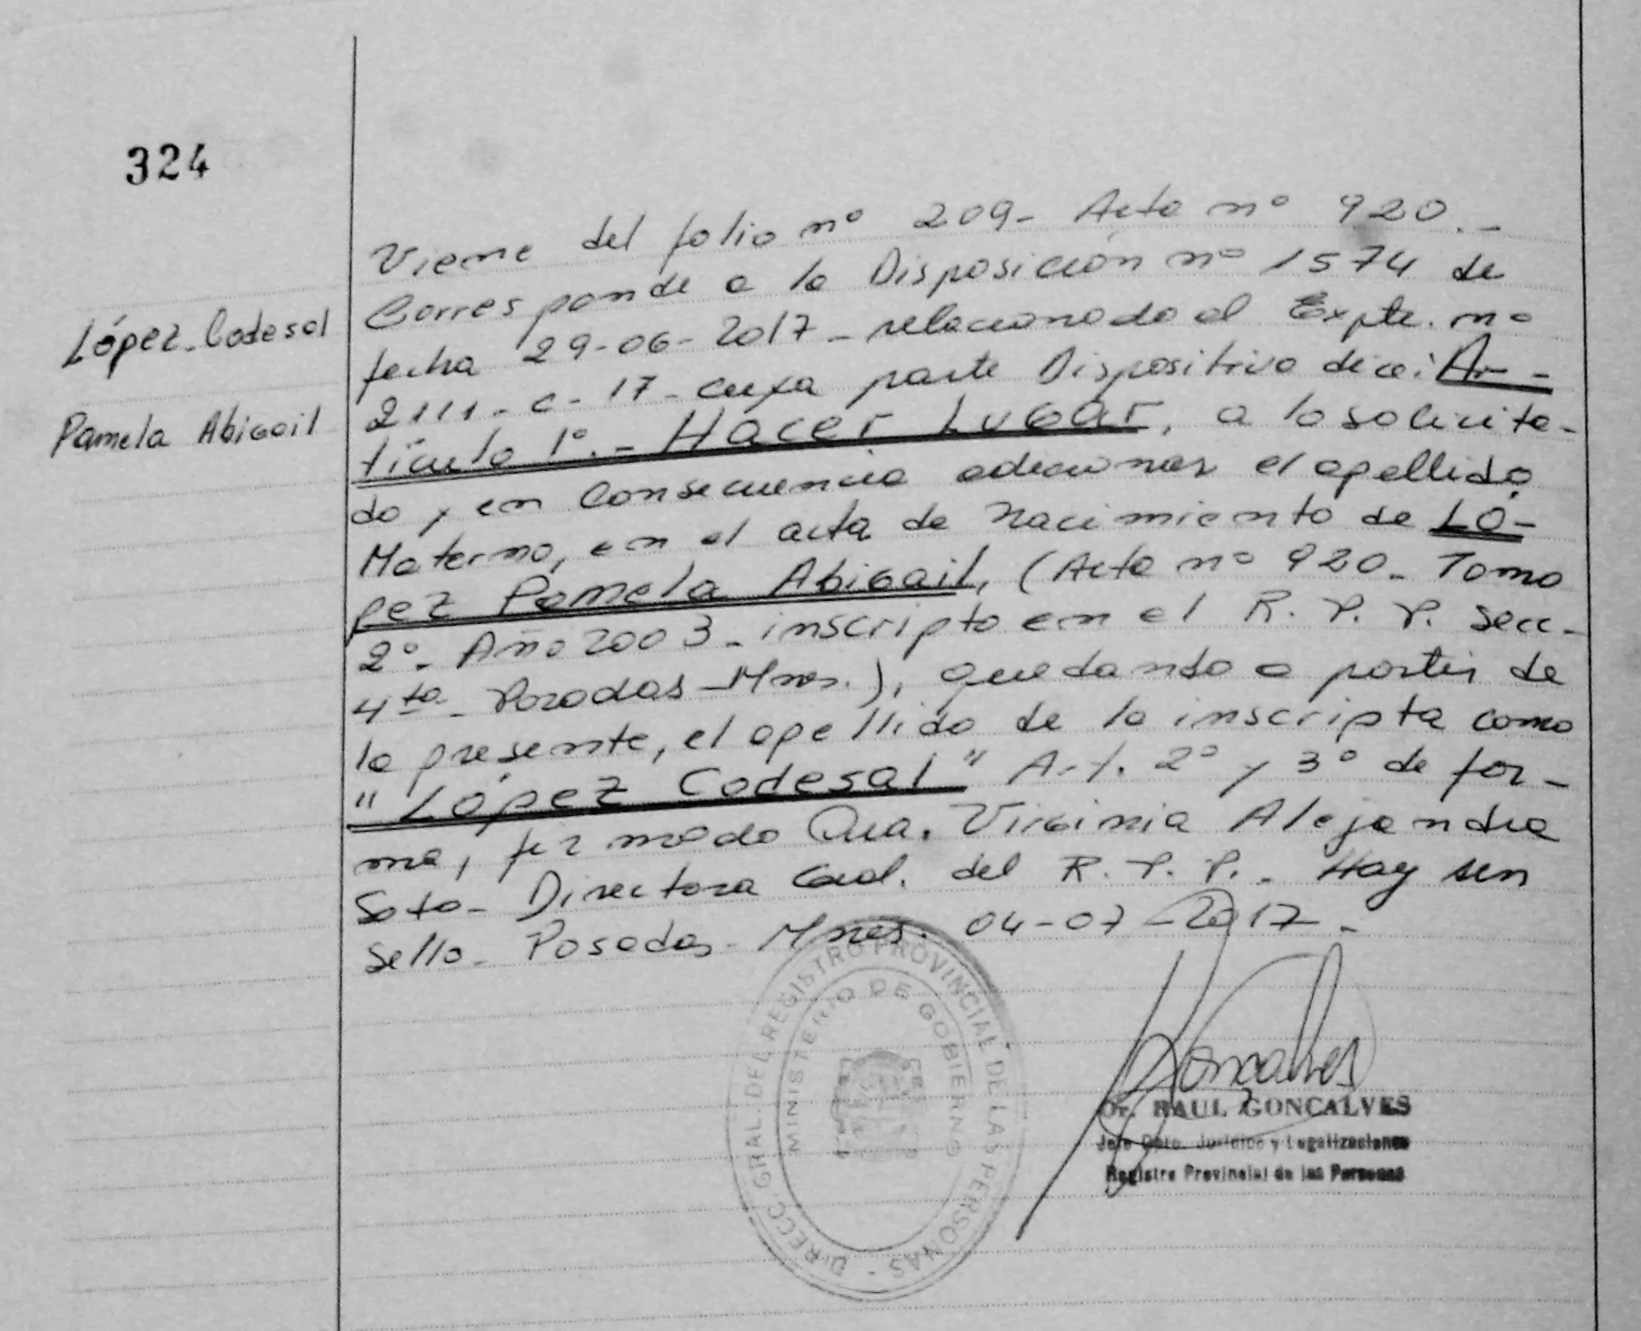 324
López-Codesal
Pamela Abigail
Viene del folio nº 209- Acta nº 920.-
Corresponde a la Disposición nº 1574 de
fecha 29-06-2017- relacionado al Expte. nº
2111-C-17- cuya parte Dispositiva dice: Ar-
tículo 1º.- Hacer Lugar, a lo solicita-
do y en Consecuencia adicionar el apellido
Materno, en el acta de Nacimiento de LÓ-
pez Pamela Abigail, (Acta nº 920- Tomo
2º- Año 2003- inscripto en el R. P. P. Secc-
4ta- Posadas-Mnes.), quedando a partir de
la presente, el apellido de la inscripta como
"López Codesal" Art. 2º y 3º de for-
ma, firmado Dra. Virginia Alejandra
Soto- Directora Gral. del R. P. P.- Hay un
Sello- Posadas- Mnes. 04-07-2017-
DIRECC. GRAL. DEL REGISTRO PROVINCIAL DE LAS PERSONAS -
MINISTERIO DE GOBIERNO
Goncalves
Dr. RAUL GONCALVES
Jefe Dpto. Jurídico y Legalizaciones
Registro Provincial de las Personas